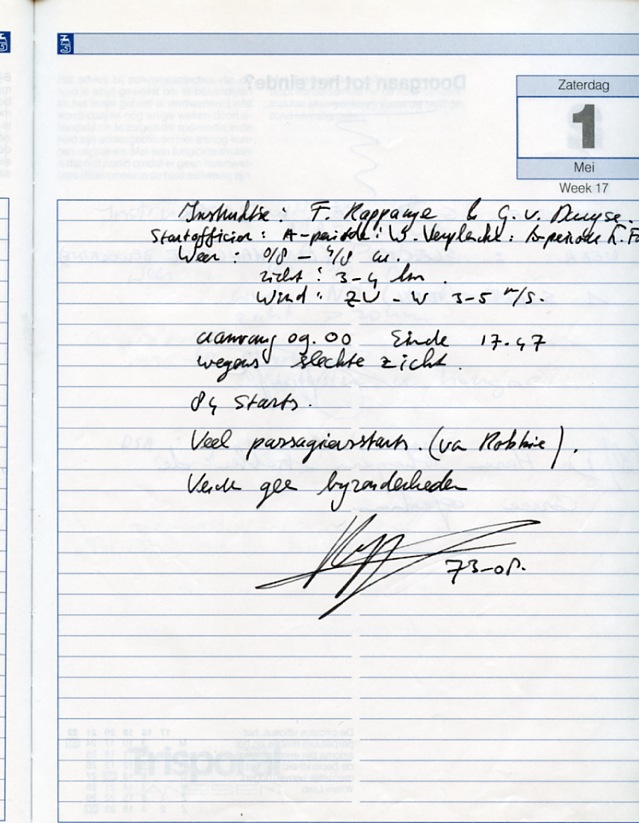 Zaterdag
1
Mei
Week 17
Instruktie: F. Kappange & G. v. Duyse.
Startofficier: A-periode: W. Verplacke: B-periode
Weer: 0/8 - 4/8 cu.
zicht: 3-4 km
Wind: ZW - W 3-5 m/s.
aanvang 09.00 Einde 17.47
wegens slechte zicht.
84 Starts.
Veel passagiersstarts. (va Robbie).
gee byzonderheden
73-08.
Doorgaan tot het einde?